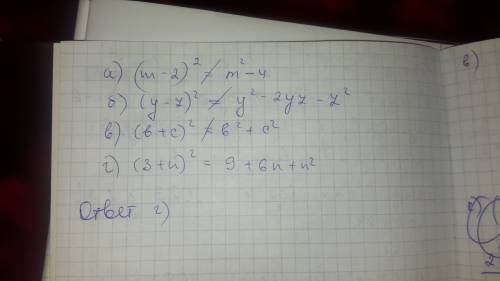 а) (m-2)² ≠ m²-4
в)
б) (y-z)² ≠ y² - 2yz - z²
в) (b+c)² ≠ b² + c²
г) (3+n)² = 9 + 6n + n²
Ответ г)